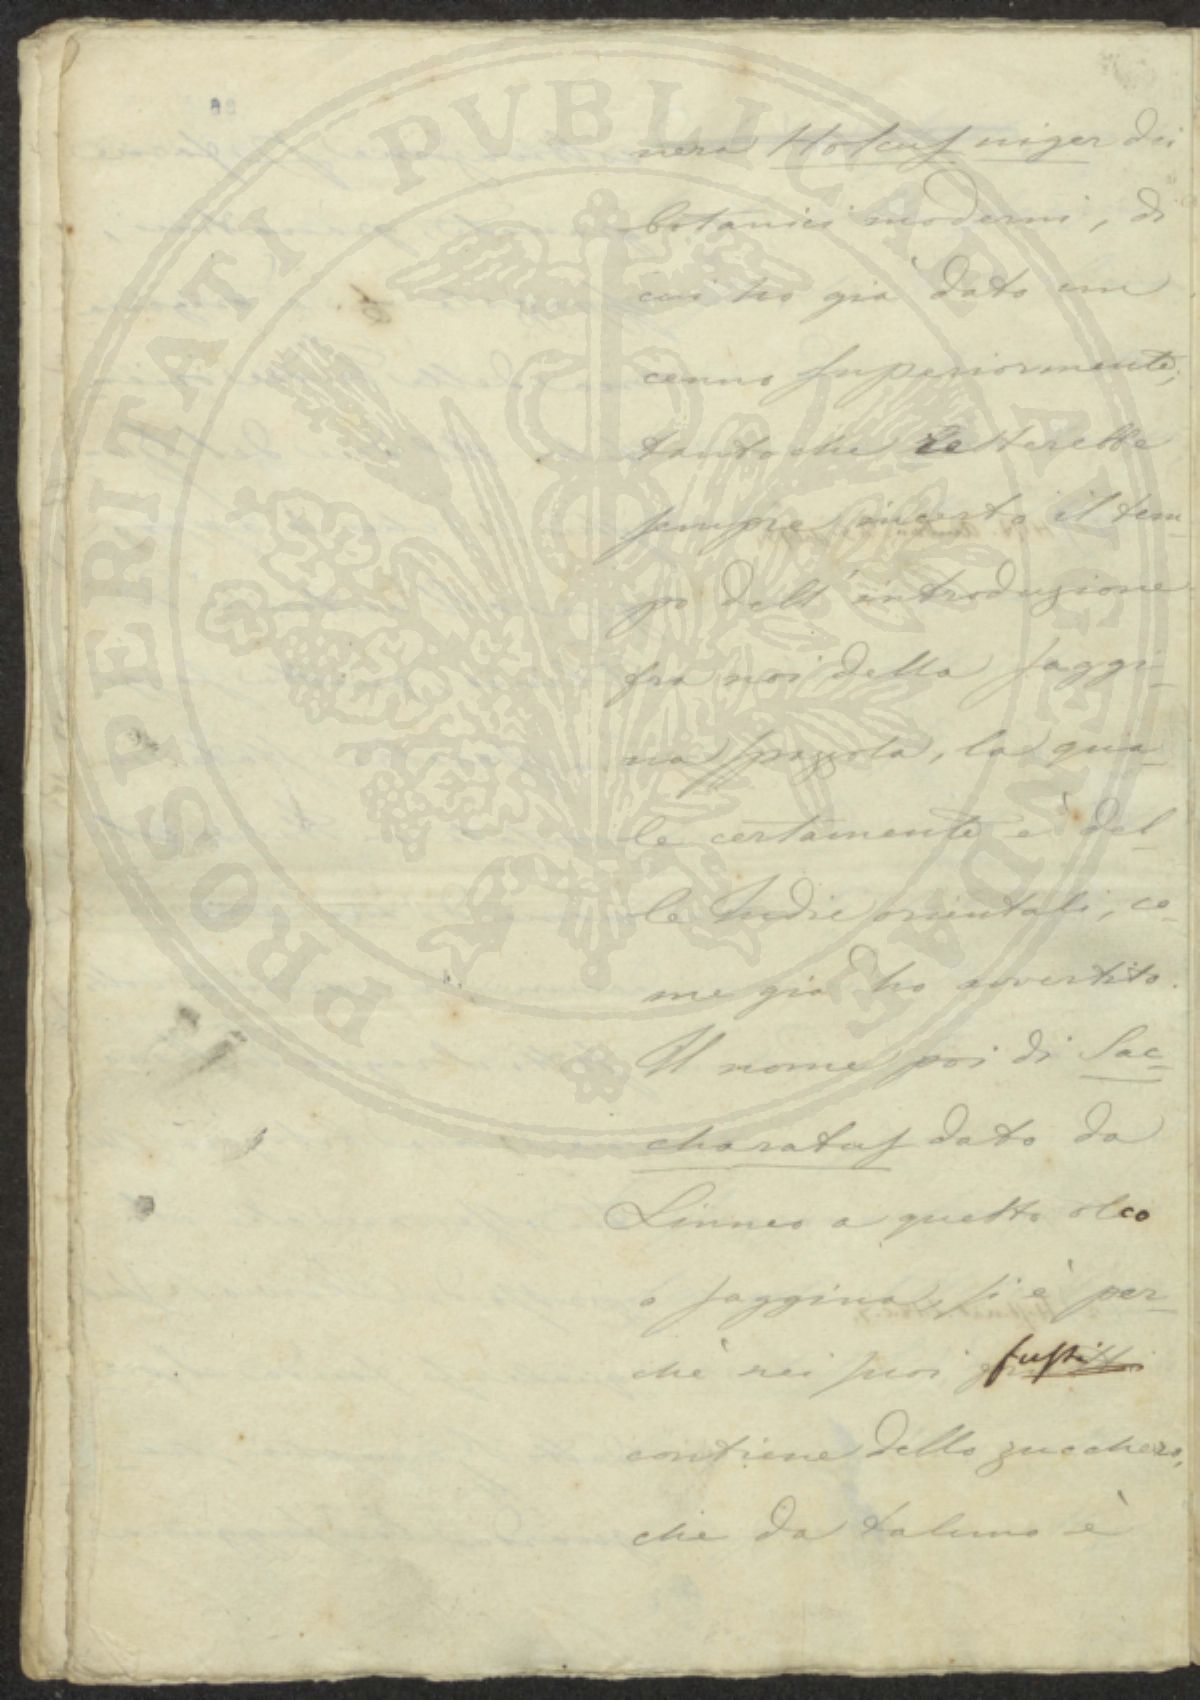 nera Holcus niger dei
botanici moderni, di
cui ho già dato un
cenno superiormente;
tantoche resterebbe
sempre incerto il tem-
po dell'introduzione
fra noi della saggi-
na spazzola, la qua-
le certamente è del-
le Indie orientali, co-
me già ho avvertito.
Il nome poi di Sac-
charatus dato da
Linneo a questo olco
o saggina, si è per-
chè nei suoi fusti
contiene dello zucchero,
che da taluno è
PROSPERITATI PVBLICAE AVGENDAE